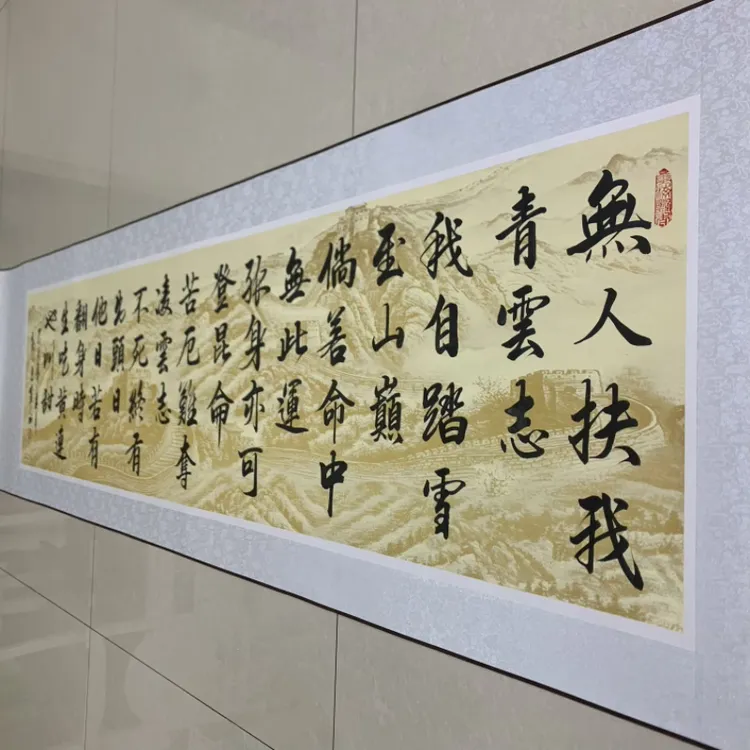 無人扶我
青雲志
我自踏雪
至山巔
倘若命中
無此運
孤身亦可
登昆侖
苦厄難奪
凌雲志
不死終有
出頭日
他日若有
翻身時
生吃黃連